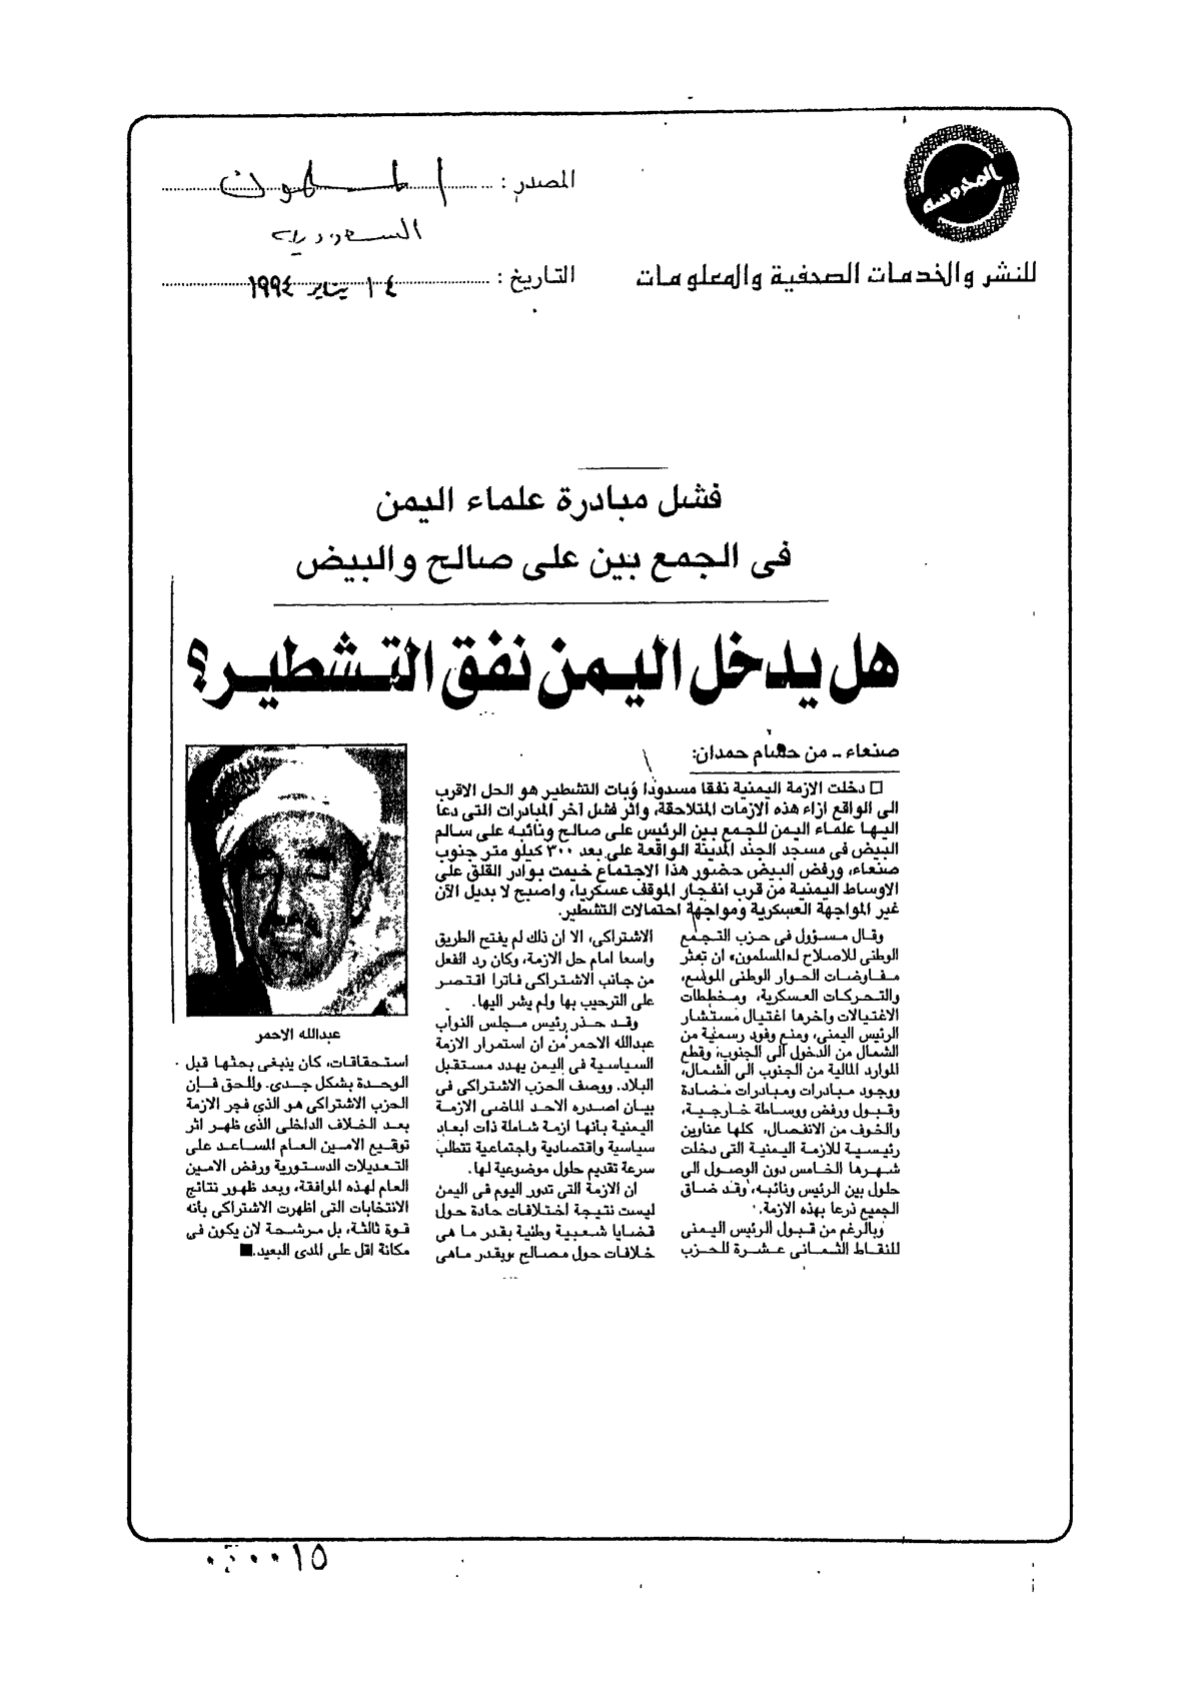 المحروسة
للنشر والخدمات الصحفية والمعلومات
المصدر : المسلمون
السعودية
التاريخ : ١٤ يناير ١٩٩٤
فشل مبادرة علماء اليمن
فى الجمع بين على صالح والبيض
هل يدخل اليمن نفق التشطير؟
صنعاء - من حسام حمدان:
□ دخلت الازمة اليمنية نفقا مسدودا وبات التشطير هو الحل الاقرب
الى الواقع ازاء هذه الازمات المتلاحقة، واثر فشل آخر المبادرات التى دعا
اليها علماء اليمن للجمع بين الرئيس على صالح ونائبه على سالم
البيض فى مسجد الجند المدينة الواقعة على بعد ٣٠٠ كيلو متر جنوب
صنعاء، ورفض البيض حضور هذا الاجتماع خيمت بوادر القلق على
الاوساط اليمنية من قرب انفجار الموقف عسكريا، واصبح لا بديل الآن
غير المواجهة العسكرية ومواجهة احتمالات التشطير.
وقال مسؤول فى حزب التجمع
الوطنى للاصلاح لـ«المسلمون» ان تعثر
مفاوضات الحوار الوطنى الموسع،
والتحركات العسكرية، ومخططات
الاغتيالات وآخرها اغتيال مستشار
الرئيس اليمنى، ومنع وفود رسمية من
الشمال من الدخول الى الجنوب، وقطع
الموارد المالية من الجنوب الى الشمال،
ووجود مبادرات ومبادرات مضادة
وقبول ورفض ووساطة خارجية،
والخوف من الانفصال، كلها عناوين
رئيسية للازمة اليمنية التى دخلت
شهرها الخامس دون الوصول الى
حلول بين الرئيس ونائبه، وقد ضاق
الجميع ذرعا بهذه الازمة.
وبالرغم من قبول الرئيس اليمنى
للنقاط الثمانى عشرة للحزب
الاشتراكى، الا ان ذلك لم يفتح الطريق
واسعا امام حل الازمة، وكان رد الفعل
من جانب الاشتراكى فاترا اقتصر
على الترحيب بها ولم يشر اليها.
وقد حذر رئيس مجلس النواب
عبدالله الاحمر من ان استمرار الازمة
السياسية فى اليمن يهدد مستقبل
البلاد. ووصف الحزب الاشتراكى فى
بيان اصدره الاحد الماضى الازمة
اليمنية بأنها ازمة شاملة ذات ابعاد
سياسية واقتصادية واجتماعية تتطلب
سرعة تقديم حلول موضوعية لها.
ان الازمة التى تدور اليوم فى اليمن
ليست نتيجة اختلافات حادة حول
قضايا شعبية وطنية بقدر ما هى
خلافات حول مصالح وبقدر ماهى
عبدالله الاحمر
استحقاقات، كان ينبغى بحثها قبل
الوحدة بشكل جدى. وللحق فإن
الحزب الاشتراكى هو الذى فجر الازمة
بعد الخلاف الداخلى الذى ظهر اثر
توقيع الامين العام المساعد على
التعديلات الدستورية ورفض الامين
العام لهذه الموافقة، وبعد ظهور نتائج
الانتخابات التى اظهرت الاشتراكى بأنه
قوة ثالثة، بل مرشحة لان يكون فى
مكانة اقل على المدى البعيد.■